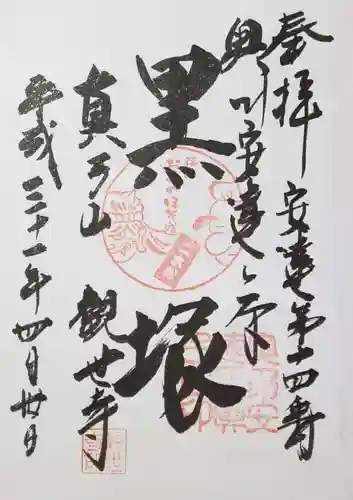 奉拝 安達第十四番
奥州安達ヶ原
黒塚
真弓山 観世寺
平成三十一年四月廿日